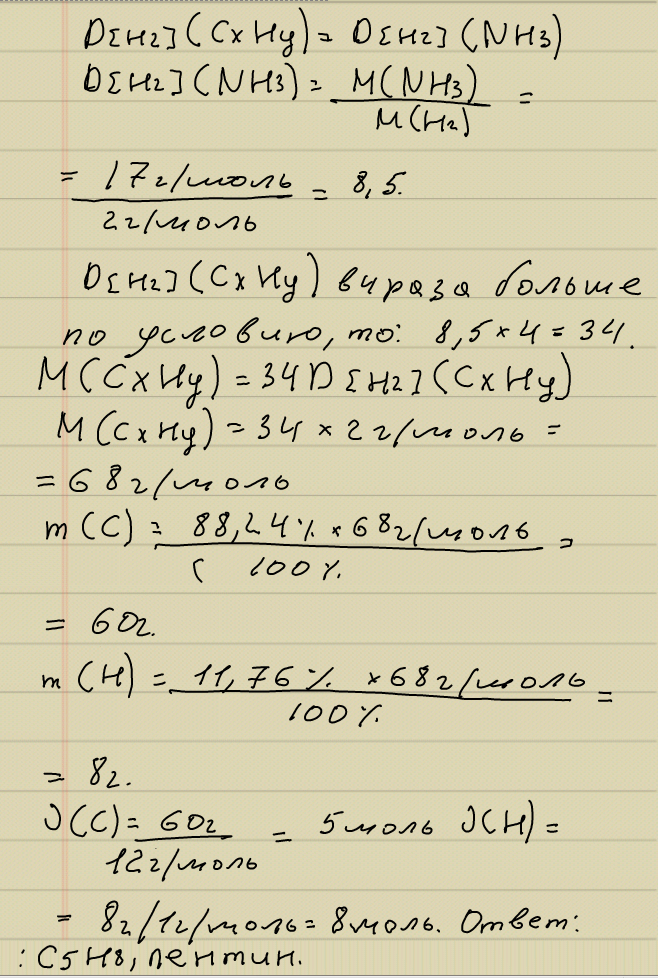 D[H2](CxHy)= D[H2](NH3)
D[H2](NH3)= M(NH3)/M(H2) =
= 17г/моль / 2г/моль = 8,5.
D[H2](CxHy) в чраза больше
по условию, то: 8,5×4=34.
M(CxHy)=34D[H2](CxHy)
M(CxHy)=34×2г/моль=
=68г/моль
m(C)= 88,24%×68г/моль / ( 100% =
= 60г.
m(H)= 11,76% ×68г/моль / 100% =
= 8г.
ν(C)= 60г / 12г/моль = 5моль ν(H)=
= 8г/1г/моль=8моль. Ответ:
: C5H8, пентин.